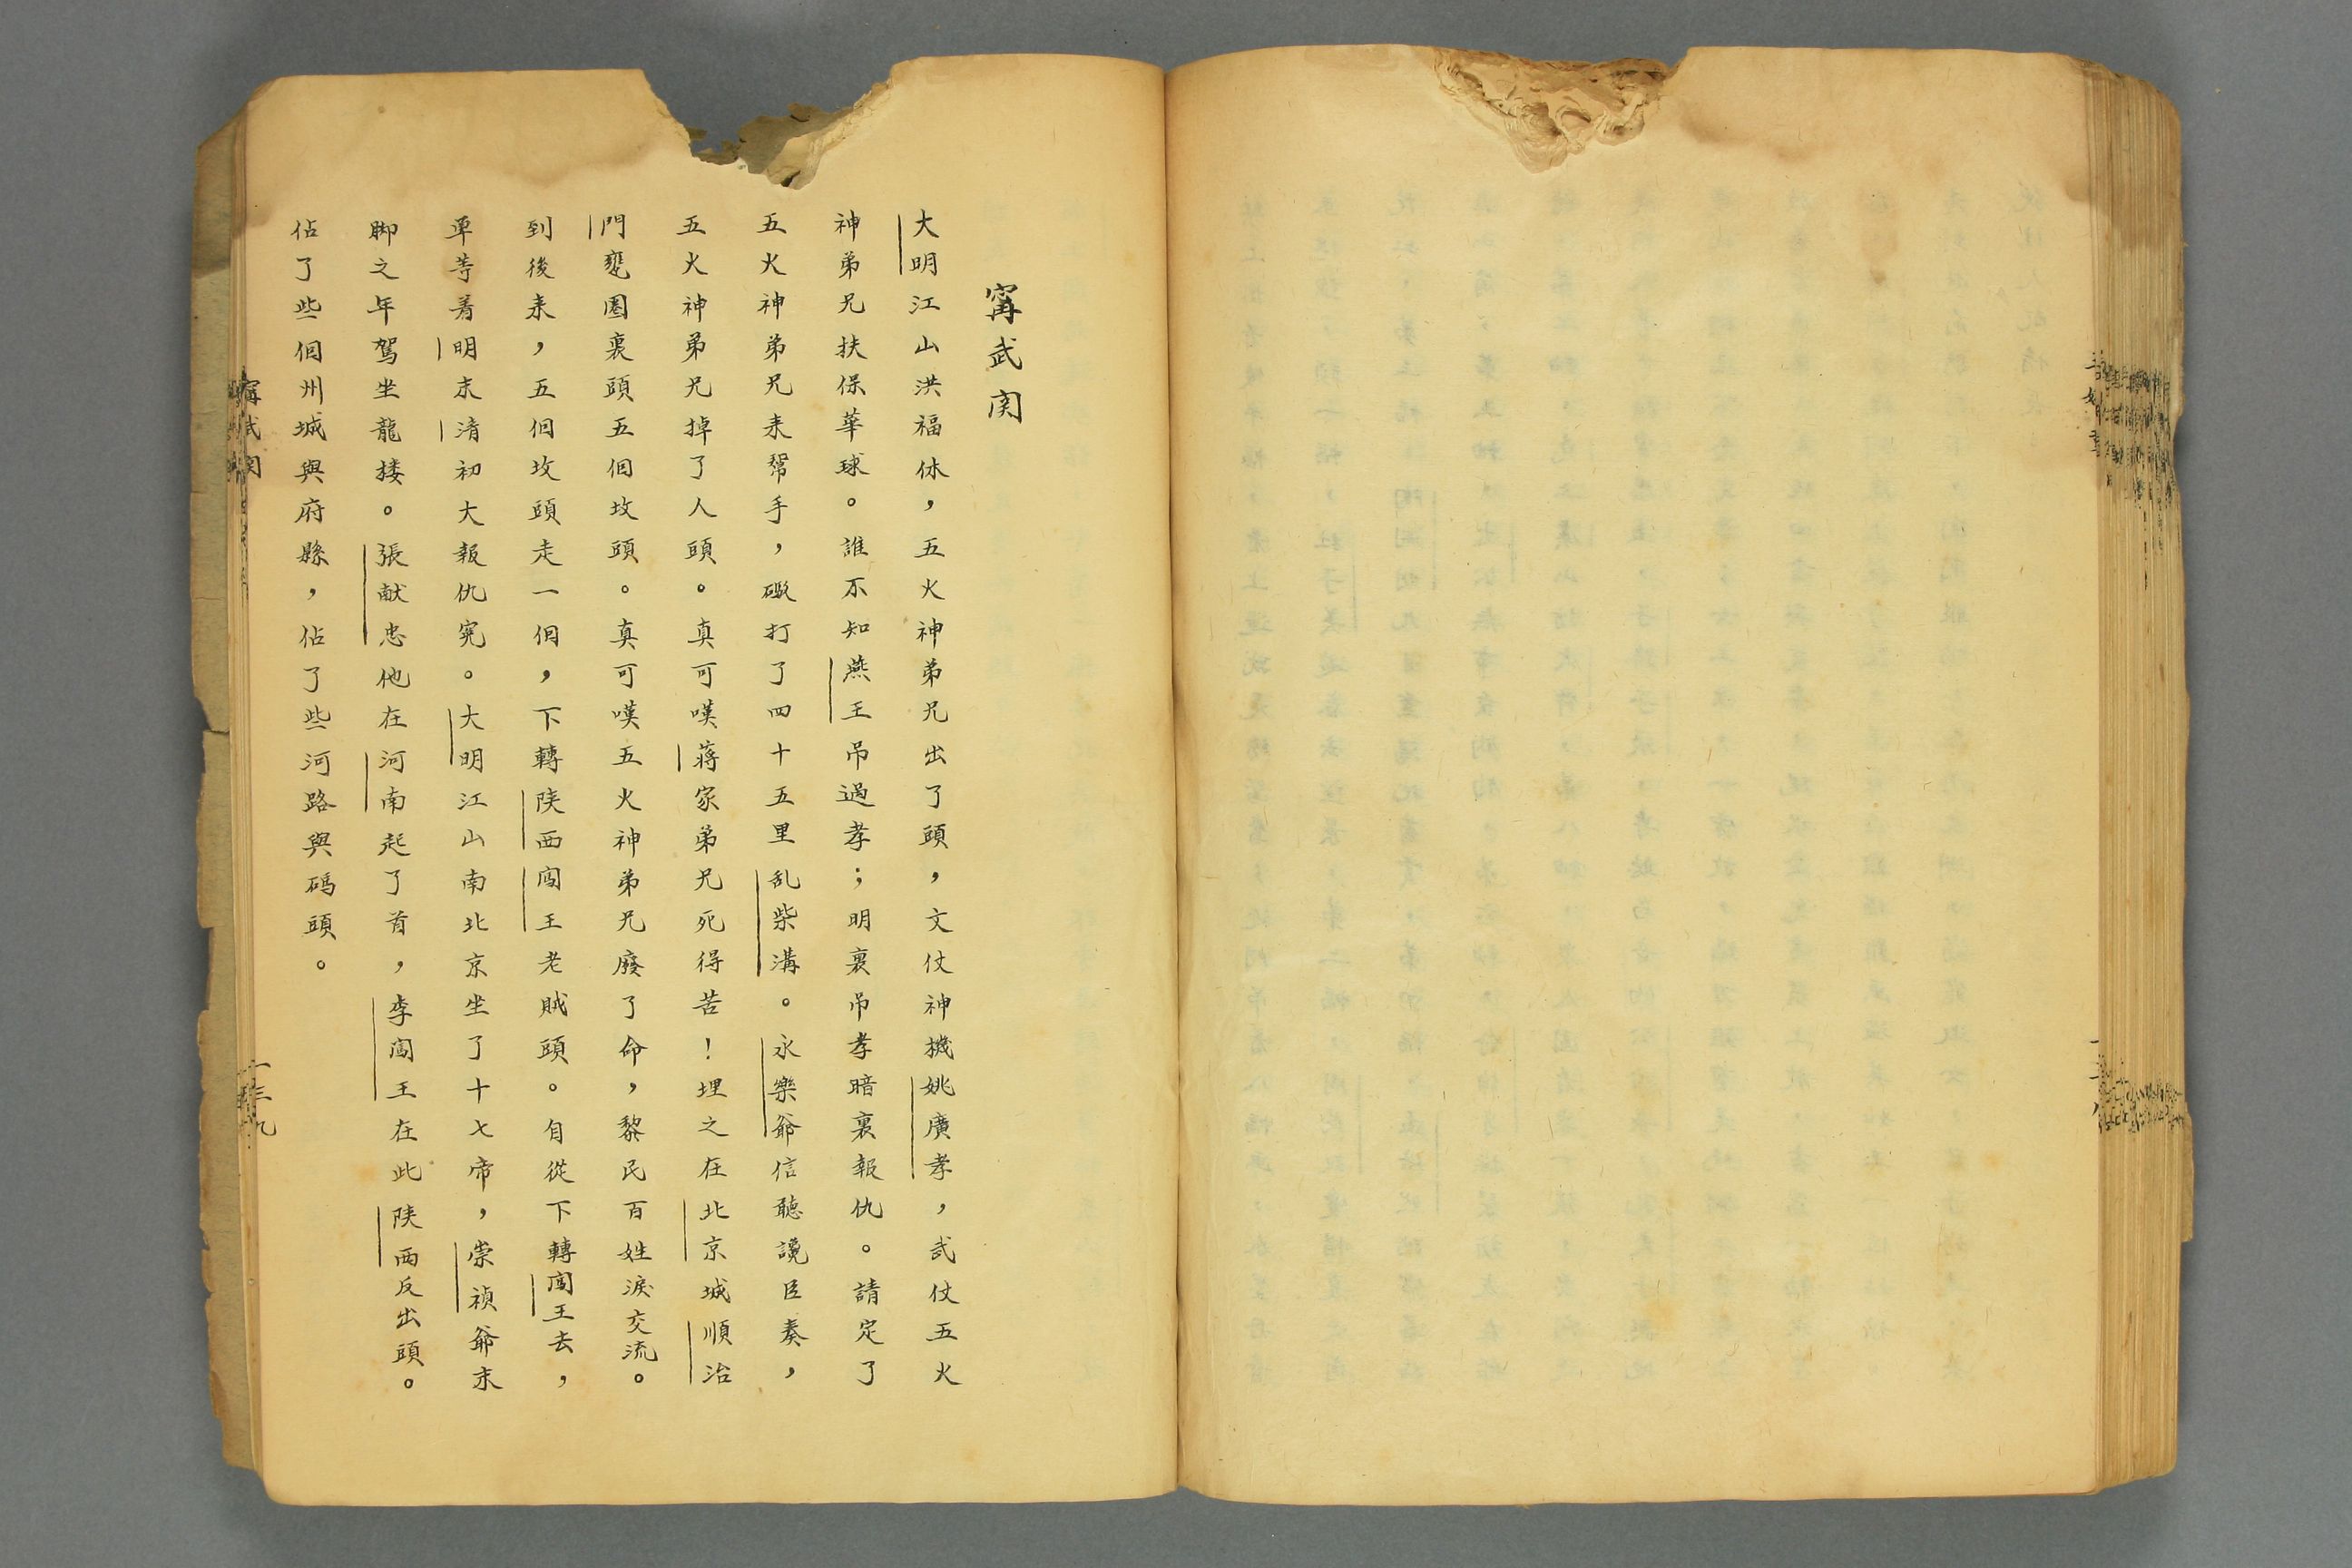 甯武関
大明江山洪福休，五火神弟兄出了頭，文仗神機姚廣孝，武仗五火
神弟兄扶保華球。誰不知燕王吊過孝；明裏吊孝暗裏報仇。請定了
五火神弟兄来帮手，礮打了四十五里乱柴溝。永樂爺信聽讒臣奏，
五火神弟兄掉了人頭。真可嘆蔣家弟兄死得苦！埋之在北京城順治
門甕圈裏頭五個坟頭。真可嘆五火神弟兄廢了命，黎民百姓淚交流。
到後来，五個坟頭走一個，下轉陕西闯王老賊頭。自從下轉闯王去，
单等着明末清初大報仇寃。大明江山南北京坐了十七帝，崇禎爺末
脚之年駕坐龍楼。張献忠他在河南起了首，李闯王在此陕西反出頭。
佔了些個州城與府縣，佔了些河路與碼頭。
甯武関
一三九